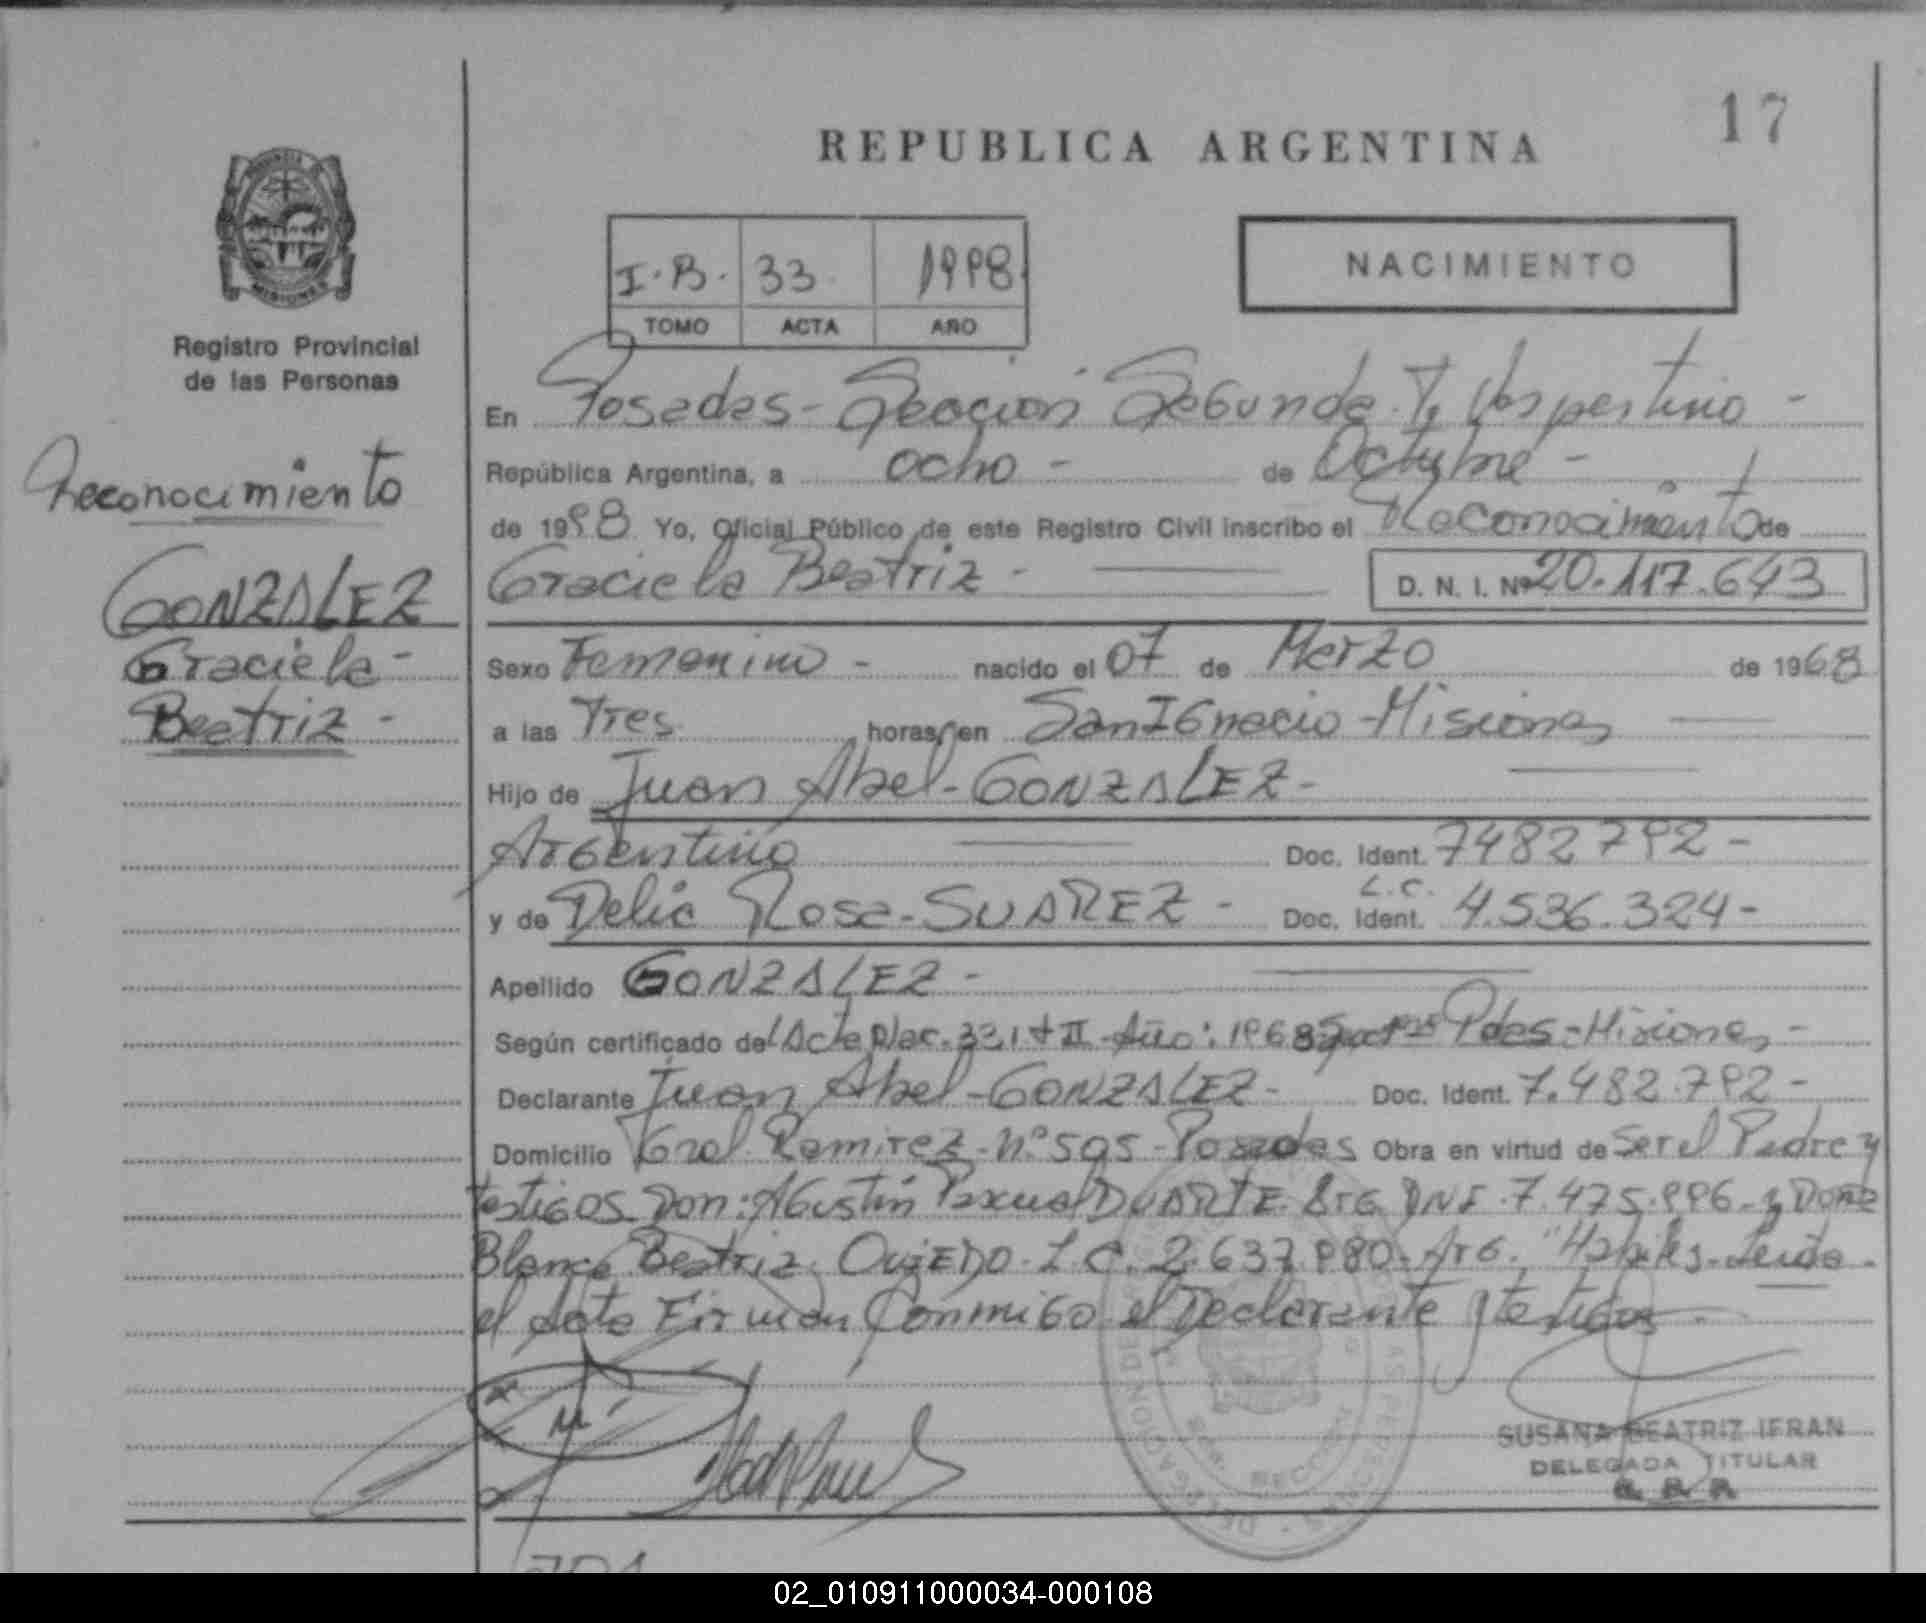 17
REPUBLICA ARGENTINA
I.B. 33 1998
TOMO ACTA AÑO
NACIMIENTO
PROVINCIA
MISIONES
Registro Provincial
de las Personas
Reconocimiento
GONZALEZ
Graciela -
Beatriz -
En Posadas - Sección Segunda T. Vespertino -
República Argentina, a ocho - de Octubre -
de 1998 Yo, Oficial Público de este Registro Civil inscribo el Reconocimiento de
Graciela Beatriz - D. N. I. Nº 20.117.643
Sexo Femenino - nacido el 07 de Marzo de 1968
a las Tres horas, en San Ignacio - Misiones
Hijo de Juan Abel - GONZALEZ -
Argentino Doc. Ident. 7482792 -
y de Delia Rosa - SUAREZ - L.C. Doc. Ident. 4.536.324 -
Apellido GONZALEZ -
Según certificado del Acta Nac. 331 t II - Año: 1968 Pdas - Misiones -
Declarante Juan Abel - GONZALEZ - Doc. Ident. 7.482.792 -
Domicilio Gral. Ramirez - Nº 595 - Posadas Obra en virtud de Ser el Padre y
testigos Don: Agustín Pascual DUARTE. Arg. DNI. 7.475.996 - y Doña
Blanca Beatriz OVIEDO - L.C. 2.637.980 - Arg. "Habiles - Leida
el Acta Firman Conmigo el Declarante y testigos -
SUSANA BEATRIZ IFRAN
DELEGADA TITULAR
02_010911000034-000108